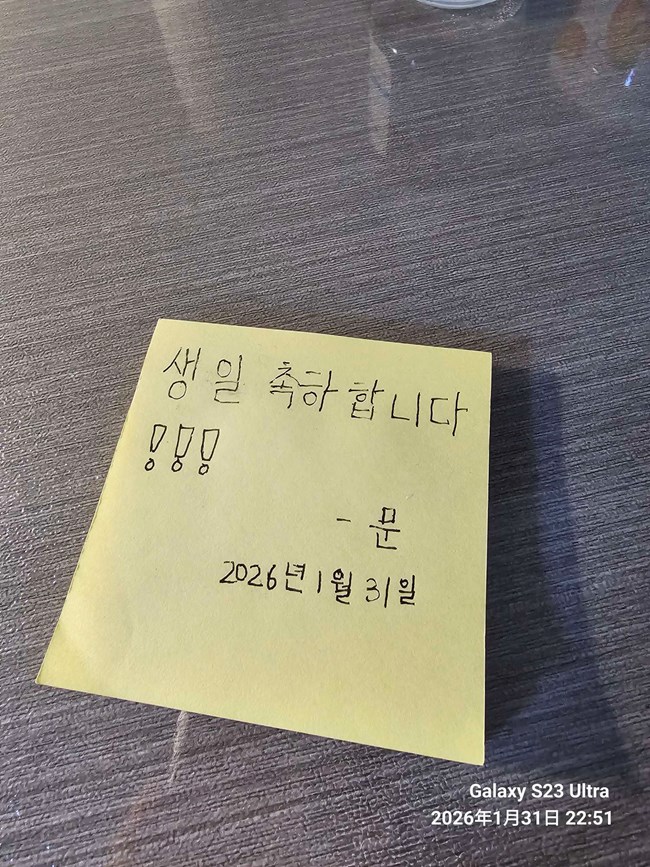 생일 축하합니다
!!!
- 문
2026년 1월 31일
Galaxy S23 Ultra
2026年1月31日 22:51